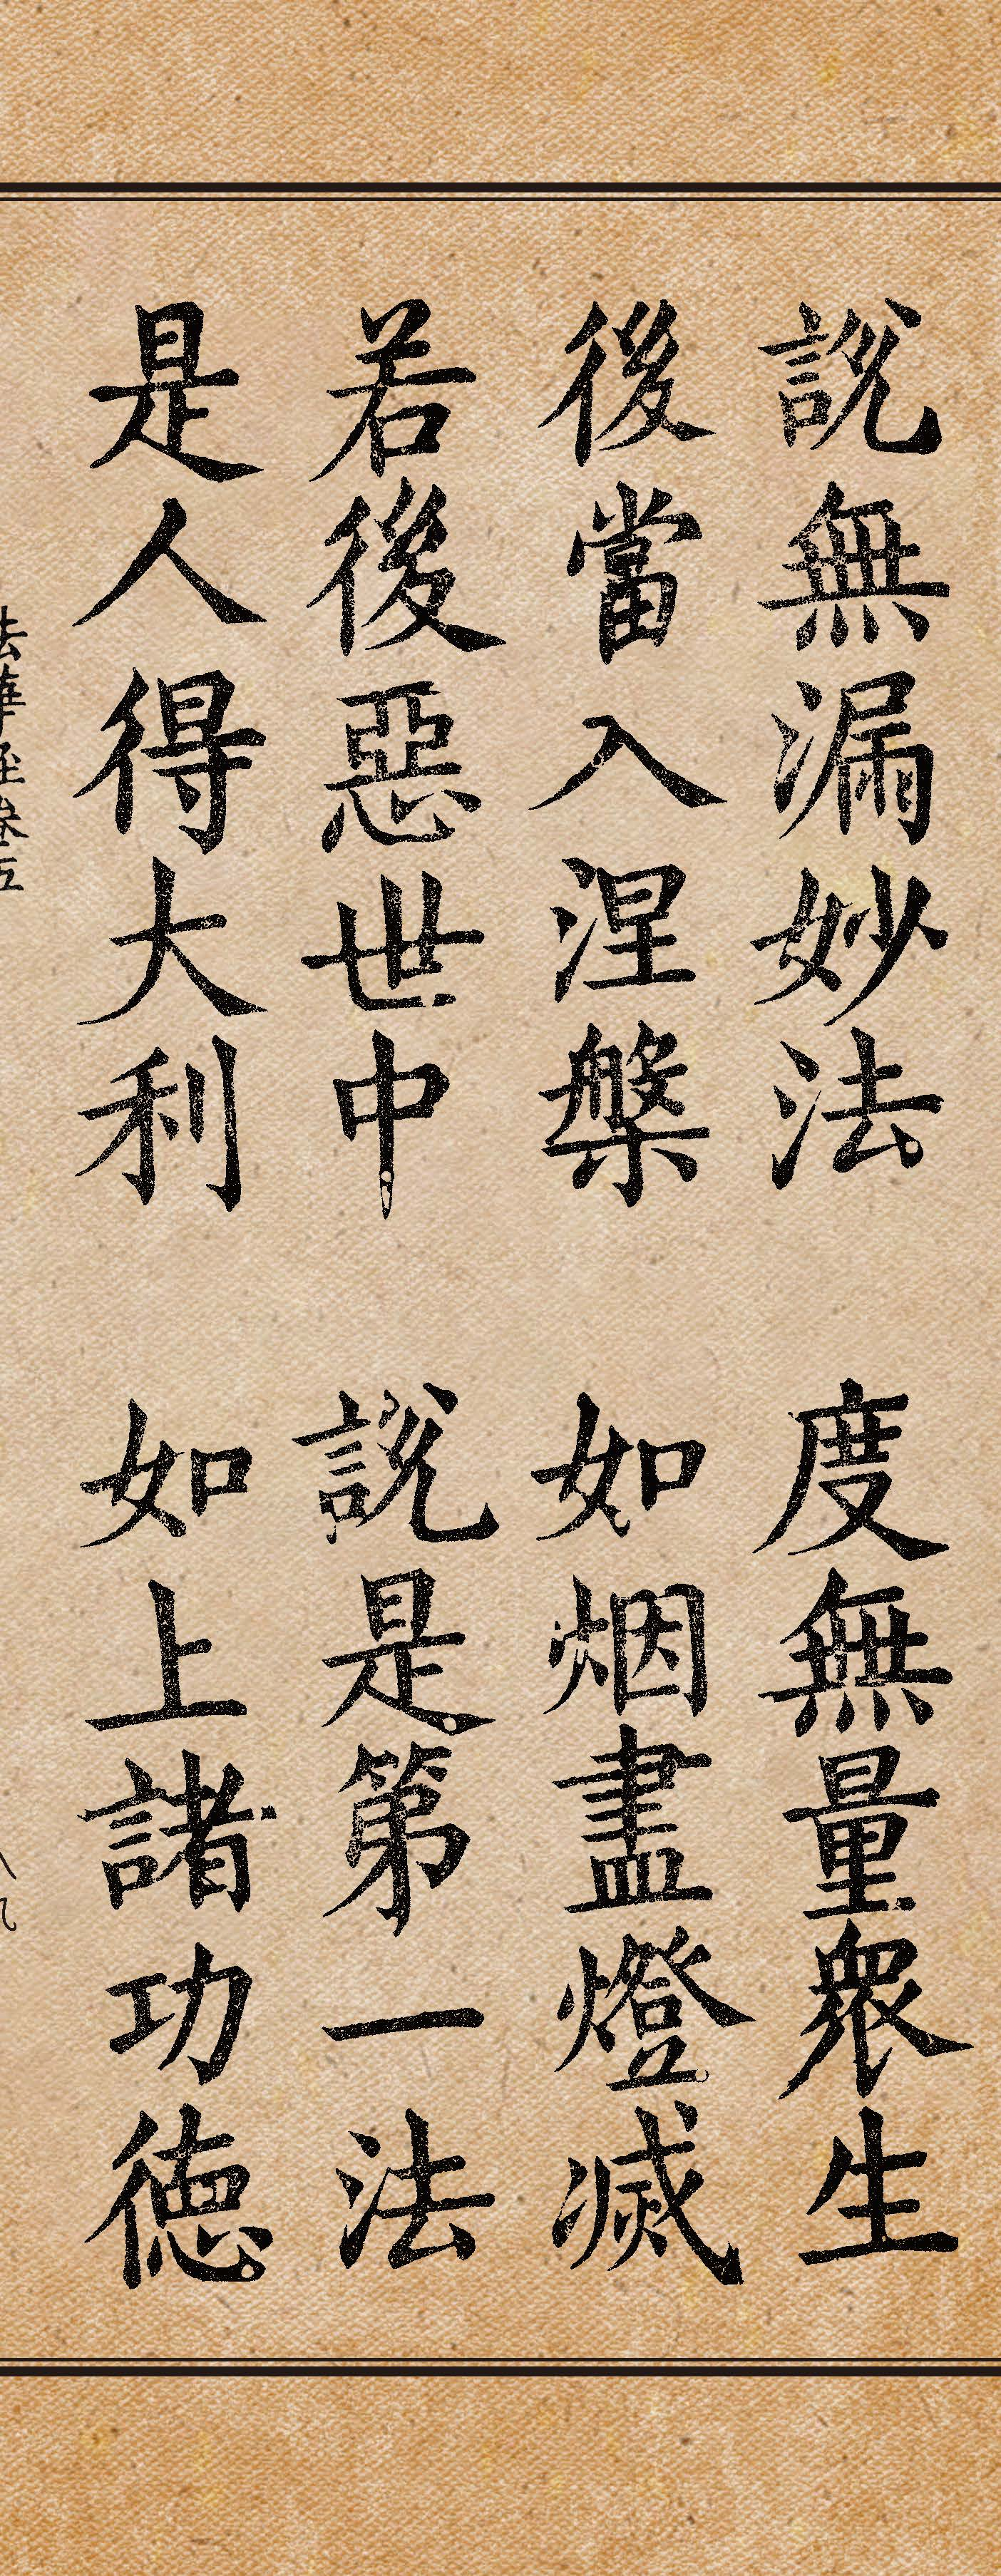 說無漏妙法　度無量衆生
後當入涅槃　如烟盡燈滅
若後惡世中　說是第一法
是人得大利　如上諸功德
法華經卷五